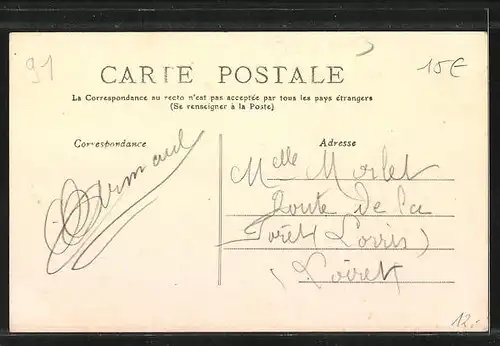 91
15€
CARTE POSTALE
La Correspondance au recto n'est pas acceptée par tous les pays étrangers
(Se renseigner à la Poste)
Correspondance
Adresse
Armand
Melle Morlet
Route de la
Foret (Lorris)
(Loiret)
12.-